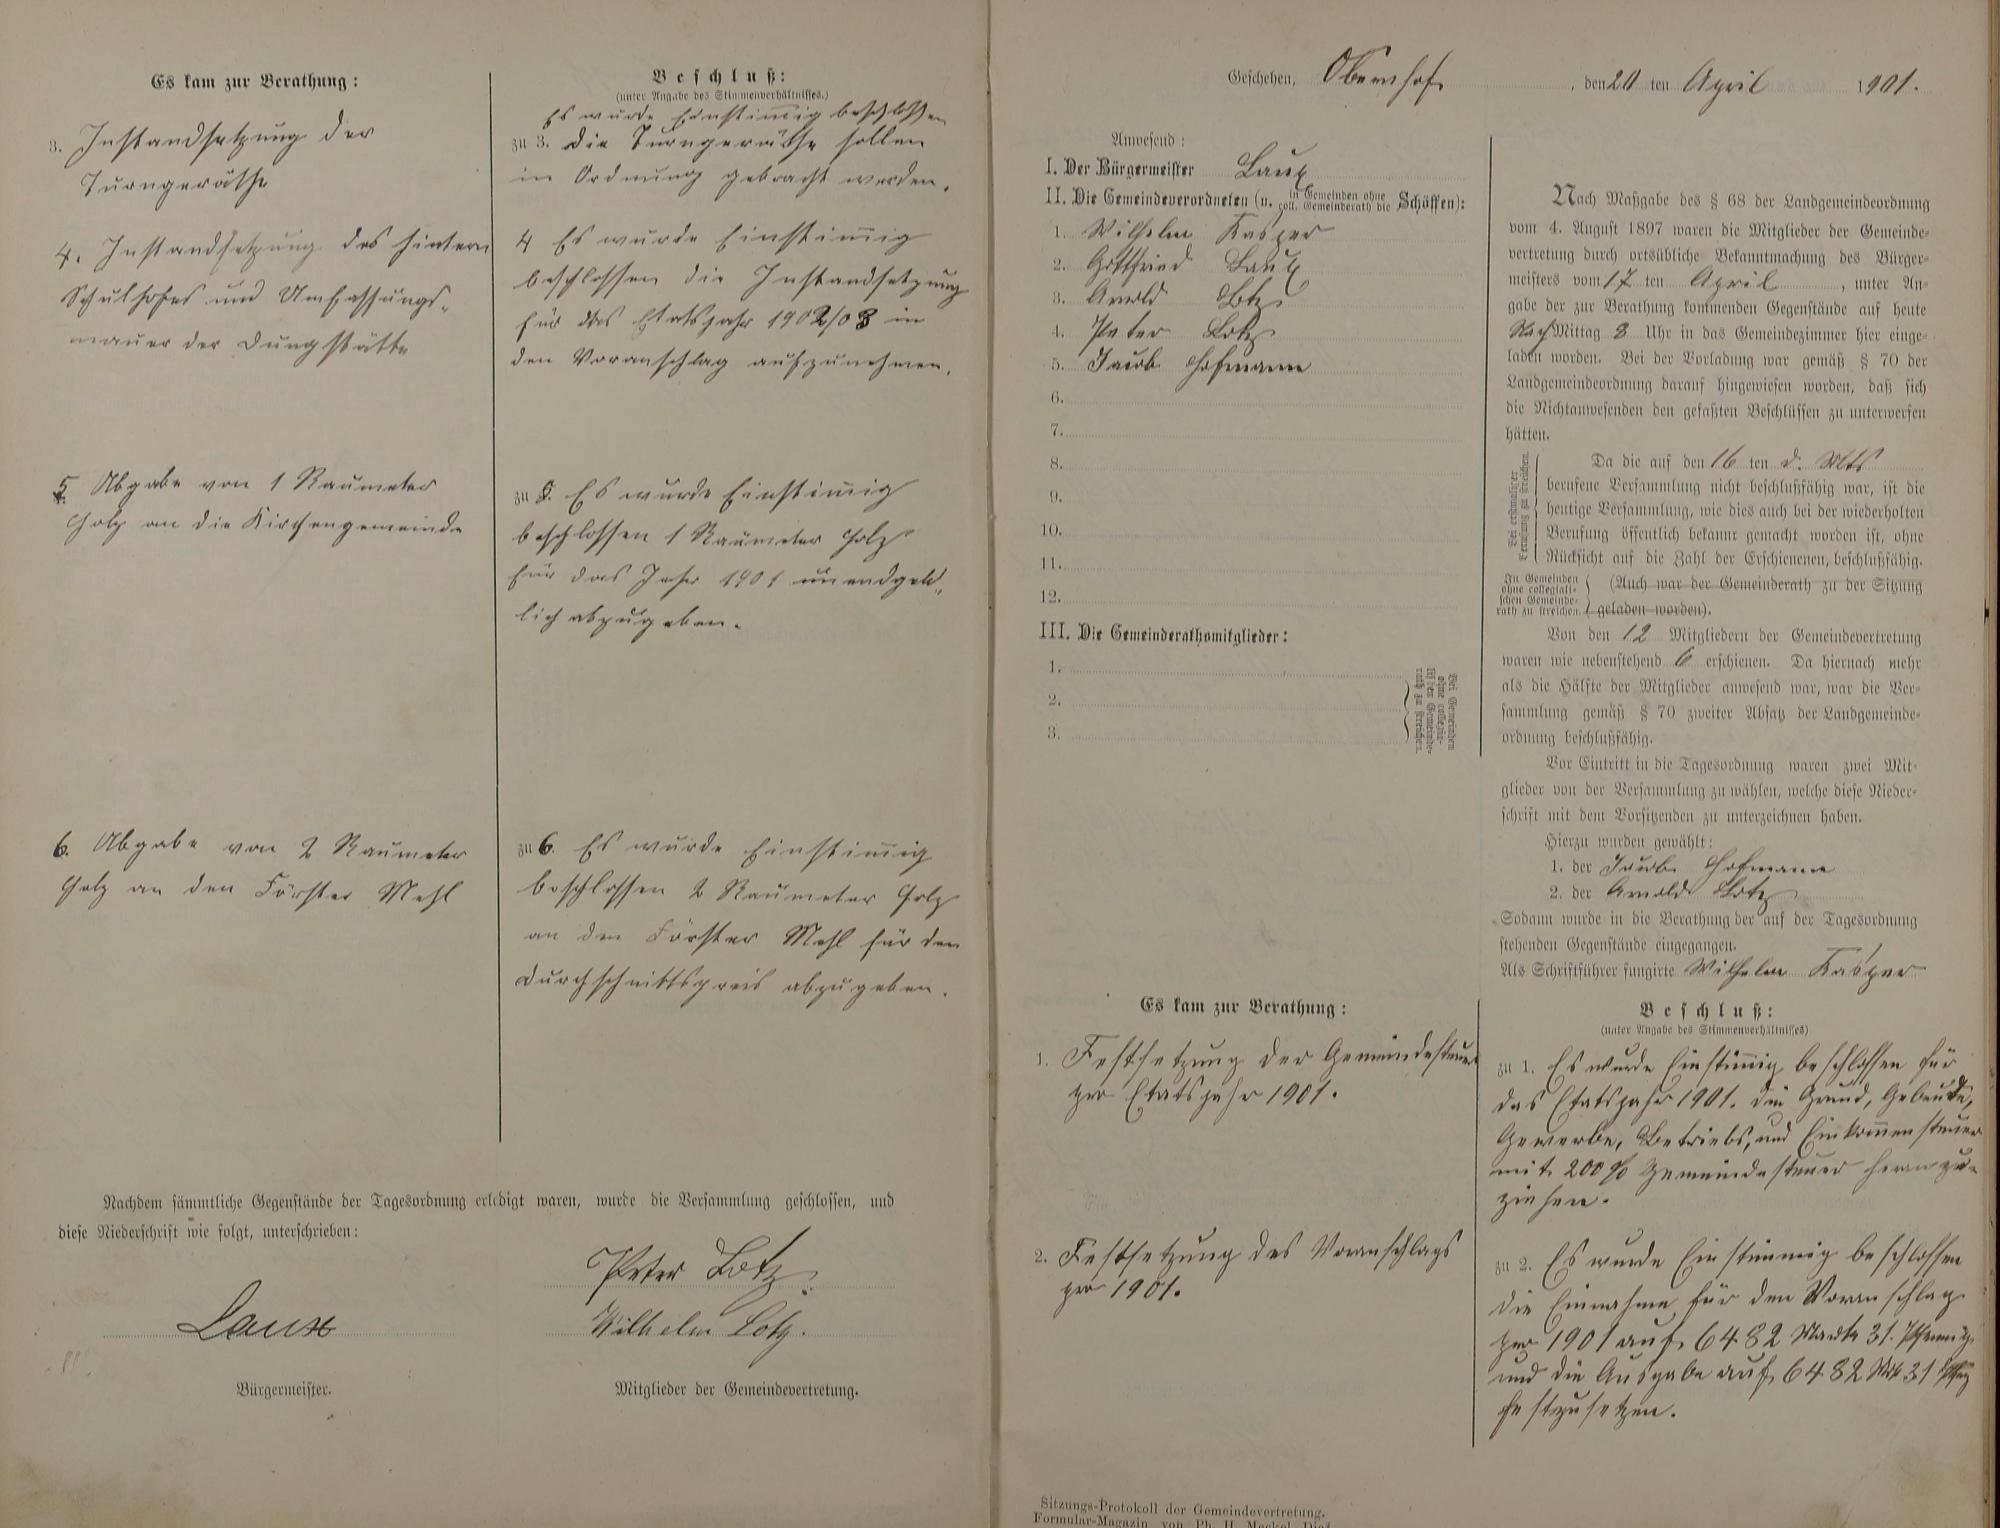 Es kam zur Berathung:
3. Instandsetzung der
Turngeräthe
4. Instandsetzung des hintern
Schulhofes und Umfassungs-
mauer der Dungstätte
5 Abgabe von 1 Raumeter
Holz an die Kirchengemeinde
6. Abgabe von 2 Raumeter
Holz an den Förster Mehl
Beschluß:
(unter Angabe des Stimmenverhältnisses.)
Es wurde Einstimig beschlossen
zu 3. die Turngeräthe sollen
in Ordnung gebracht werden.
4 Es wurde Einstimig
beschlossen die Instandsetzung
für das Etatsjahr 1902/03 in
den Voranschlag aufzunehmen.
zu 5. Es wurde Einstimig
beschlossen 1 Raumeter Holz
für das Jahr 1901 unendgeld„
lich abzugeben.
zu 6. Es wurde Einstimig
beschlossen 2 Raumeter Holz
an den Förster Mehl für den
Durchschnittspreis abzugeben.
Nachdem sämmtliche Gegenstände der Tagesordnung erledigt waren, wurde die Versammlung geschlossen, und
diese Niederschrift wie folgt, unterschrieben:
Peter Lotz
Laux
Wilhelm Lotz.
Bürgermeister.
Mitglieder der Gemeindevertretung.
Geschehen, Obernhof, den 20 ten April 1901.
Anwesend:
I. Der Bürgermeister Laux
II. Die Gemeindeverordneten (u. in Gemeinden ohne coll. Gemeinderath die Schöffen):
1. Wilhelm Kasper
2. Gottfried Laux
3. Arnold Lotz
4. Peter Lotz
5. Jacob Hofmann
6.
7.
8.
9.
10.
11.
12.
III. Die Gemeinderathsmitglieder:
1.
2.
3.
Bei Gemeinden
ohne collegia-
lischen Gemeinde-
rath zu streichen.
Nach Maßgabe des § 68 der Landgemeindeordnung
vom 4. August 1897 waren die Mitglieder der Gemeinde-
vertretung durch ortsübliche Bekanntmachung des Bürger-
meisters vom 17 ten April, unter An-
gabe der zur Berathung kommenden Gegenstände auf heute
Nach Mittag 8 Uhr in das Gemeindezimmer hier einge-
laden worden. Bei der Vorladung war gemäß § 70 der
Landgemeindeordnung darauf hingewiesen worden, daß sich
die Nichtanwesenden den gefaßten Beschlüssen zu unterwerfen
hätten.
Bei erstmaliger
Berufung zu streichen.
Da die auf den 16 ten d. Mts
berufene Versammlung nicht beschlußfähig war, ist die
heutige Versammlung, wie dies auch bei der wiederholten
Berufung öffentlich bekannt gemacht worden ist, ohne
Rücksicht auf die Zahl der Erschienenen, beschlußfähig.
In Gemeinden
ohne collegiali-
schen Gemeinde-
rath zu streichen.
(Auch war der Gemeinderath zu der Sitzung
geladen worden).
Von den 12 Mitgliedern der Gemeindevertretung
waren wie nebenstehend 6 erschienen. Da hiernach mehr
als die Hälfte der Mitglieder anwesend war, war die Ver-
sammlung gemäß § 70 zweiter Absatz der Landgemeinde-
ordnung beschlußfähig.
Vor Eintritt in die Tagesordnung waren zwei Mit-
glieder von der Versammlung zu wählen, welche diese Nieder-
schrift mit dem Vorsitzenden zu unterzeichnen haben.
Hierzu wurden gewählt:
1. der Jacob Hofmann
2. der Arnold Lotz
Sodann wurde in die Berathung der auf der Tagesordnung
stehenden Gegenstände eingegangen.
Als Schriftführer fungirte Wilhelm Kasper
Es kam zur Berathung:
1. Festsetzung der Gemeindesteuer
pro Etatsjahr 1901.
2. Festsetzung des Voranschlags
pro 1901.
Beschluß:
(unter Angabe des Stimmenverhältnisses)
zu 1. Es wurde Einstimig beschlossen für
das Etatsjahr 1901. die Grund, Gebeude,
Gewerbe, Betriebs, und Einkommensteuer
mit 200 % Gemeindesteuer heranzu-
ziehen.
zu 2. Es wurde Einstimmig beschlossen
die Einnahme für den Voranschlag
pro 1901 auf 6482 Mark 31. Pfennig
und die Ausgabe auf 6482 Mk 31 Pfg
festzusetzen.
Sitzungs-Protokoll der Gemeindevertretung.
Formular-Magazin von Ph. H. Meckel, Diez